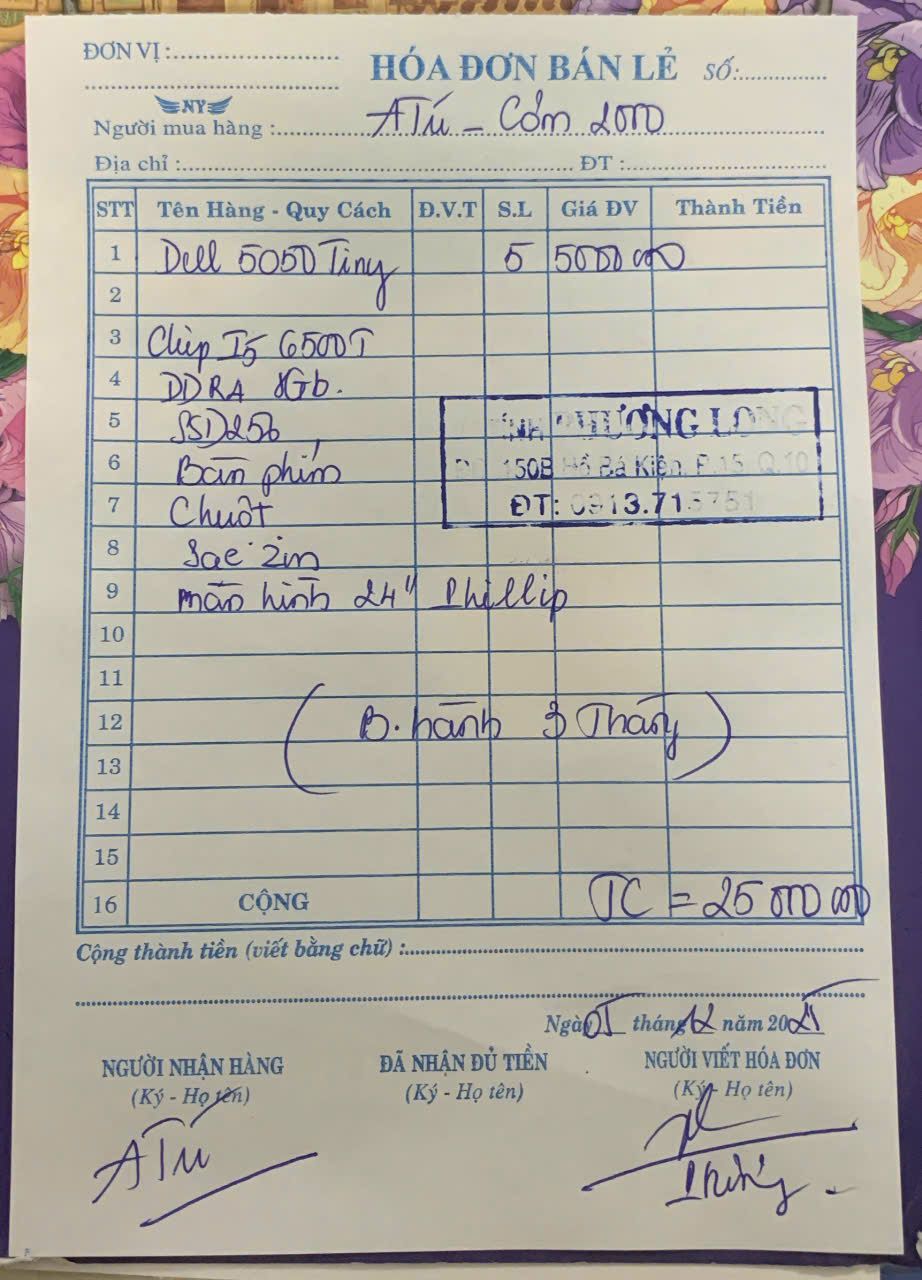 ĐƠN VỊ :
HÓA ĐƠN BÁN LẺ SỐ:
NY
Người mua hàng : A Tú - Cơm 2000
Địa chỉ : ĐT :
STT Tên Hàng - Quy Cách Đ.V.T S.L Giá ĐV Thành Tiền
1 Dell 5050 Tiny 5 5000 000
2
3 Chip I5 6500T
4 DDR4 8Gb.
5 SSD 256
6 Bàn phím
7 Chuột
8 Sạc zin
9 màn hình 24" Phillip
PHƯƠNG LONG
150B Hồ Bá Kiện, P.15, Q.10
ĐT: 0913.715751
10
11
12 (B. hành 3 Tháng)
13
14
15
16 CỘNG TC = 25 000 000
Cộng thành tiền (viết bằng chữ) :
Ngày 05 tháng 12 năm 2025
NGƯỜI NHẬN HÀNG ĐÃ NHẬN ĐỦ TIỀN NGƯỜI VIẾT HÓA ĐƠN
(Ký - Họ tên) (Ký - Họ tên) (Ký - Họ tên)
A Tú